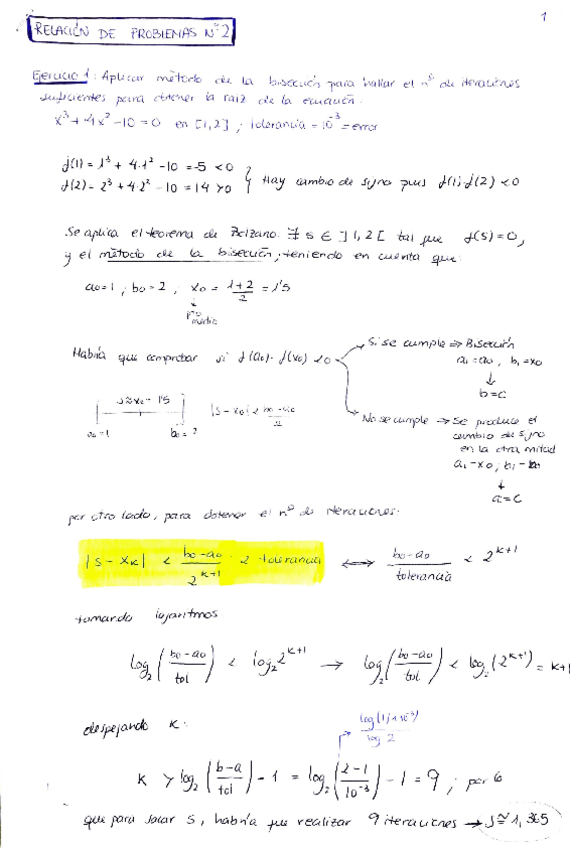 1
RELACIÓN DE PROBLEMAS Nº2
Ejercicio 1: Aplicar método de la bisección para hallar el nº de iteraciones
suficientes para obtener la raíz de la ecuación:
x³ + 4x² - 10 = 0 en [1,2] ; tolerancia = 10⁻³ = error
f(1) = 1³ + 4·1² - 10 = -5 < 0
f(2) = 2³ + 4·2² - 10 = 14 > 0 } Hay cambio de signo pues f(1)·f(2) < 0
Se aplica el teorema de Bolzano: ∃ s ∈ ]1,2[ tal que f(s) = 0,
y el método de la bisección, teniendo en cuenta que:
a₀ = 1 ; b₀ = 2 , x₀ = (1+2)/2 = 1'5
↓
pto medio
Habría que comprobar si f(a₀)·f(x₀) < 0
Si se cumple ⇒ Bisección
a₁ = a₀ , b₁ = x₀
↓
b = c
No se cumple ⇒ Se produce el
cambio de signo
en la otra mitad
a₁ = x₀ ; b₁ = b₀
↓
a = c
s ≈ x₀ = 1'5
a₀ = 1 b₀ = 2
|s - x₀| < (b₀ - a₀)/2
por otro lado, para obtener el nº de iteraciones:
|s - xₖ| < (b₀ - a₀)/2ᵏ⁺¹ < tolerancia ⟺ (b₀ - a₀)/tolerancia < 2ᵏ⁺¹
tomando logaritmos
log₂((b₀ - a₀)/tol) < log₂ 2ᵏ⁺¹ → log₂((b₀ - a₀)/tol) < log₂(2ᵏ⁺¹) = k+1
despejando k:
log(1/10⁻³)/log 2
k > log₂((b - a)/tol) - 1 = log₂((2 - 1)/10⁻³) - 1 = 9 ; por lo
que para sacar s, habría que realizar 9 iteraciones → s ≅ 1,365